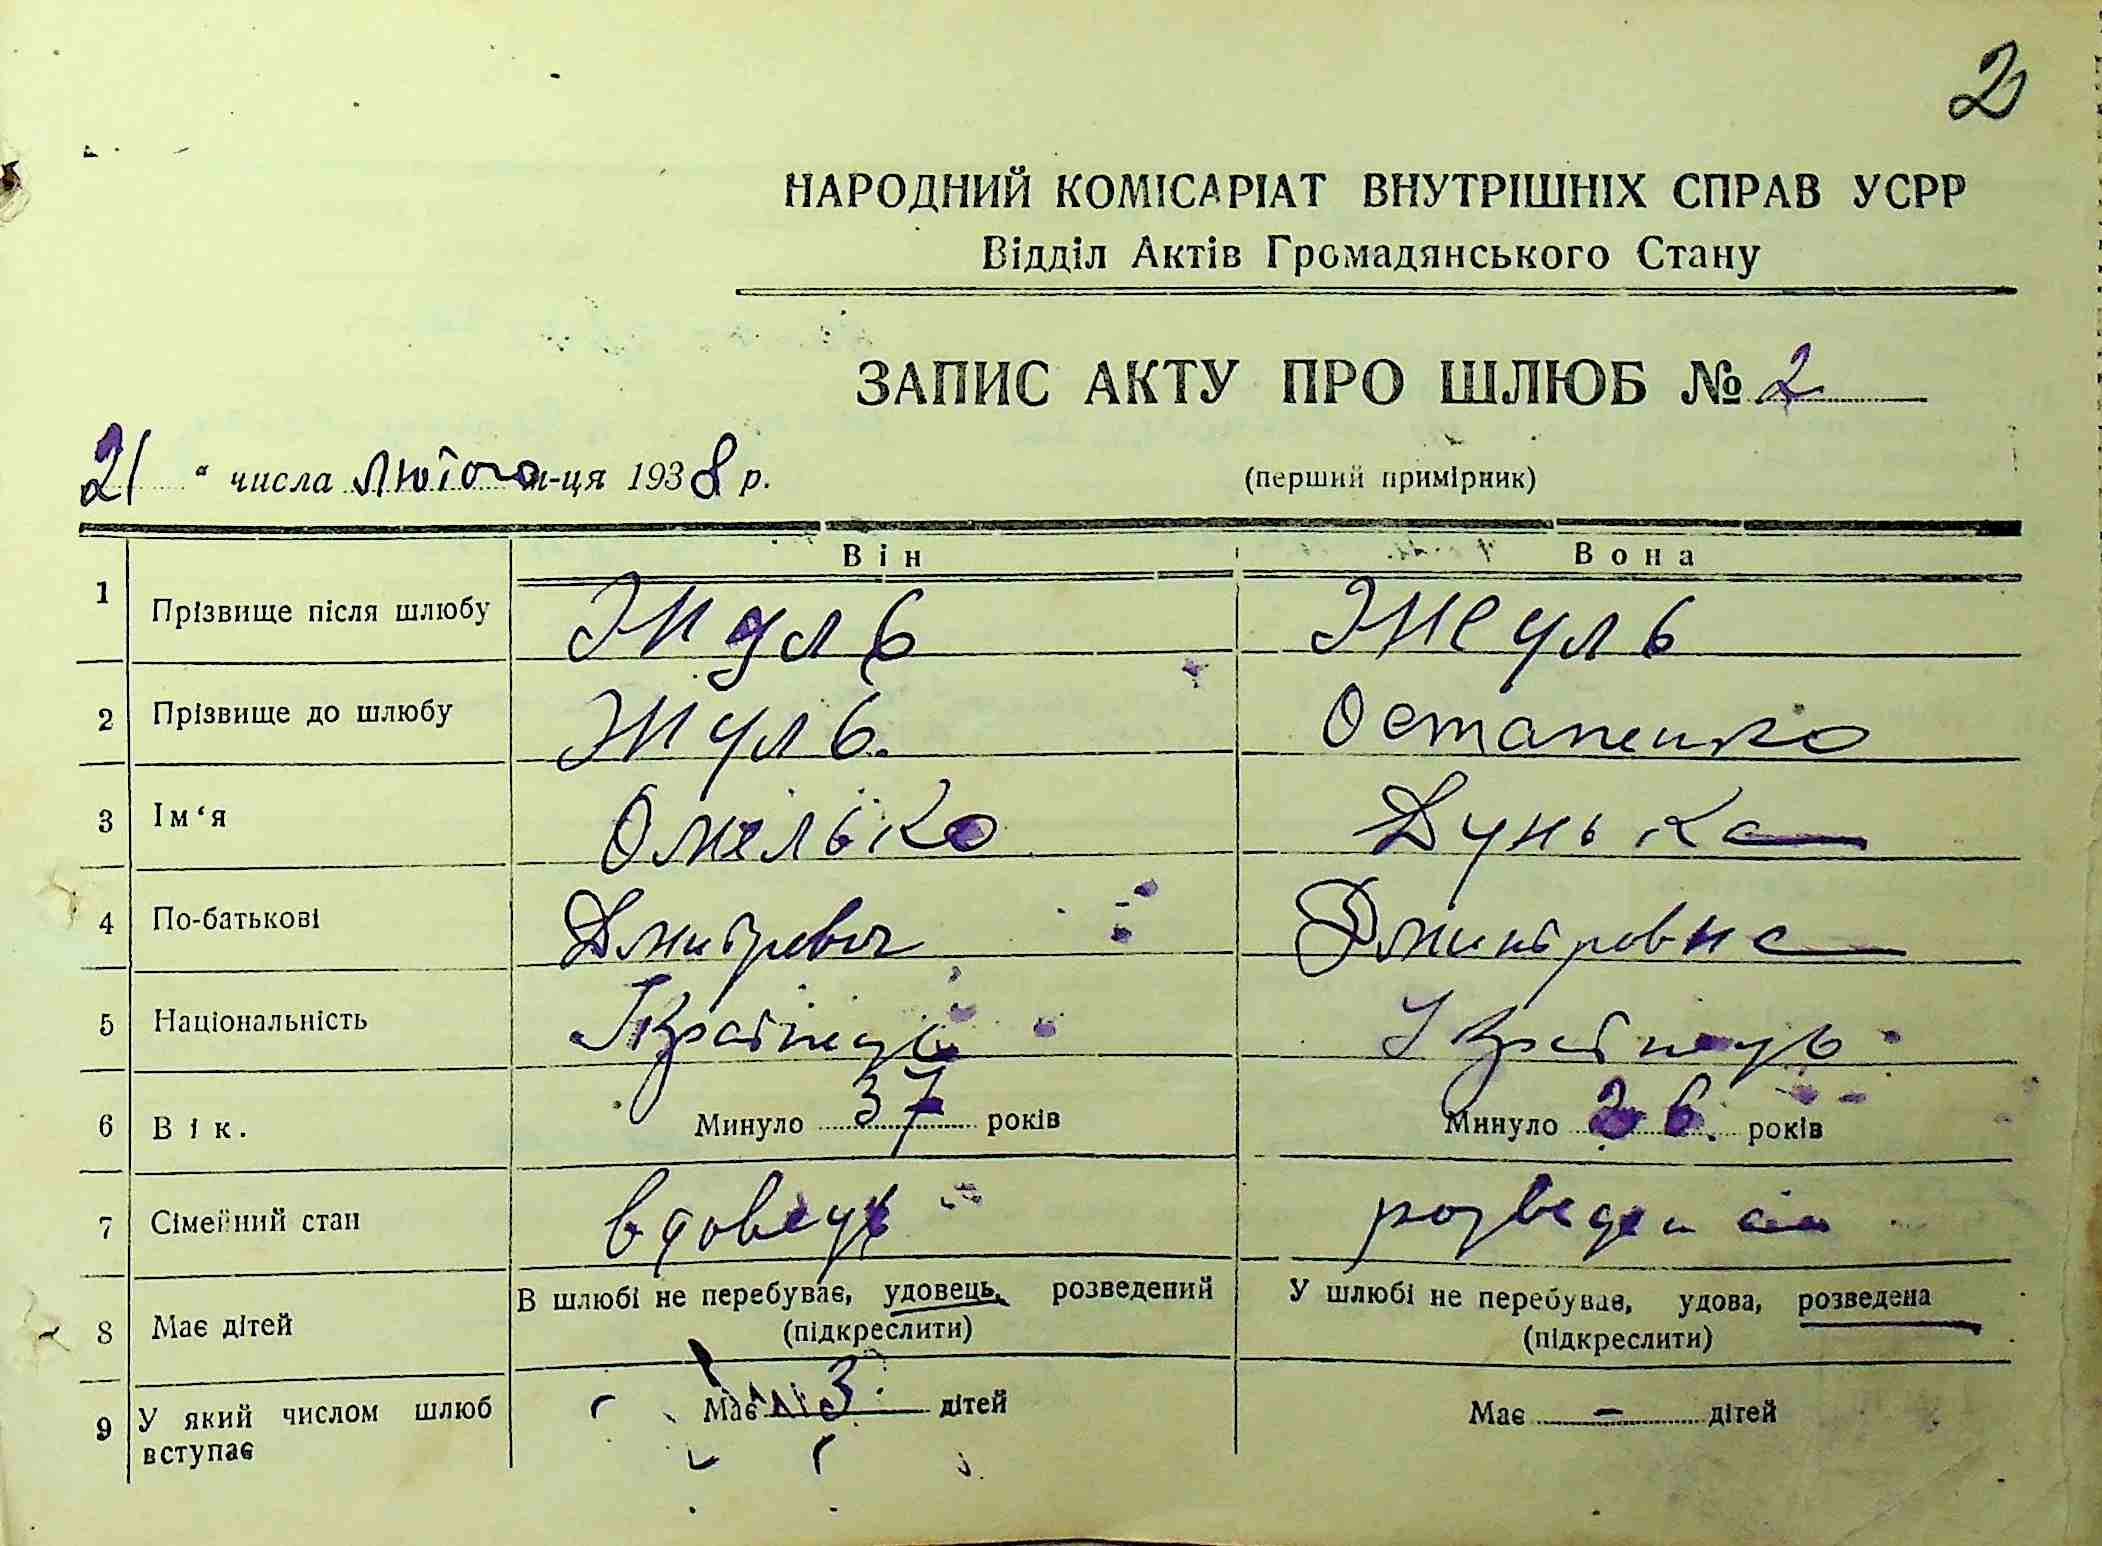 2
НАРОДНИЙ КОМІСАРІАТ ВНУТРІШНІХ СПРАВ УСРР
Відділ Актів Громадянського Стану
ЗАПИС АКТУ ПРО ШЛЮБ № 2
21 " числа лютого м-ця 1938 р.
(перший примірник)
Він Вона
1 Прізвище після шлюбу Жуль Жеуль
2 Прізвище до шлюбу Жуль. Остапенко
3 Ім'я Омелько Дунька
4 По-батькові Дмитрович Дмитровна
5 Національність Українець Українець
6 Вік. Минуло 37 років Минуло 26. років
7 Сімейний стан вдовець розведена
8 Має дітей В шлюбі не перебуває, удовець, розведений У шлюбі не перебував, удова, розведена
(підкреслити) (підкреслити)
9 У який числом шлюб вступає Має 3 дітей Має - дітей